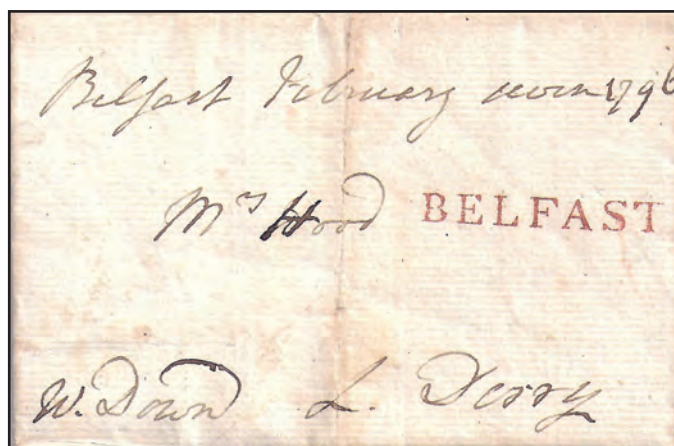 Belfast February seven 1796
Mrs Hood BELFAST
W. Down L. Derry